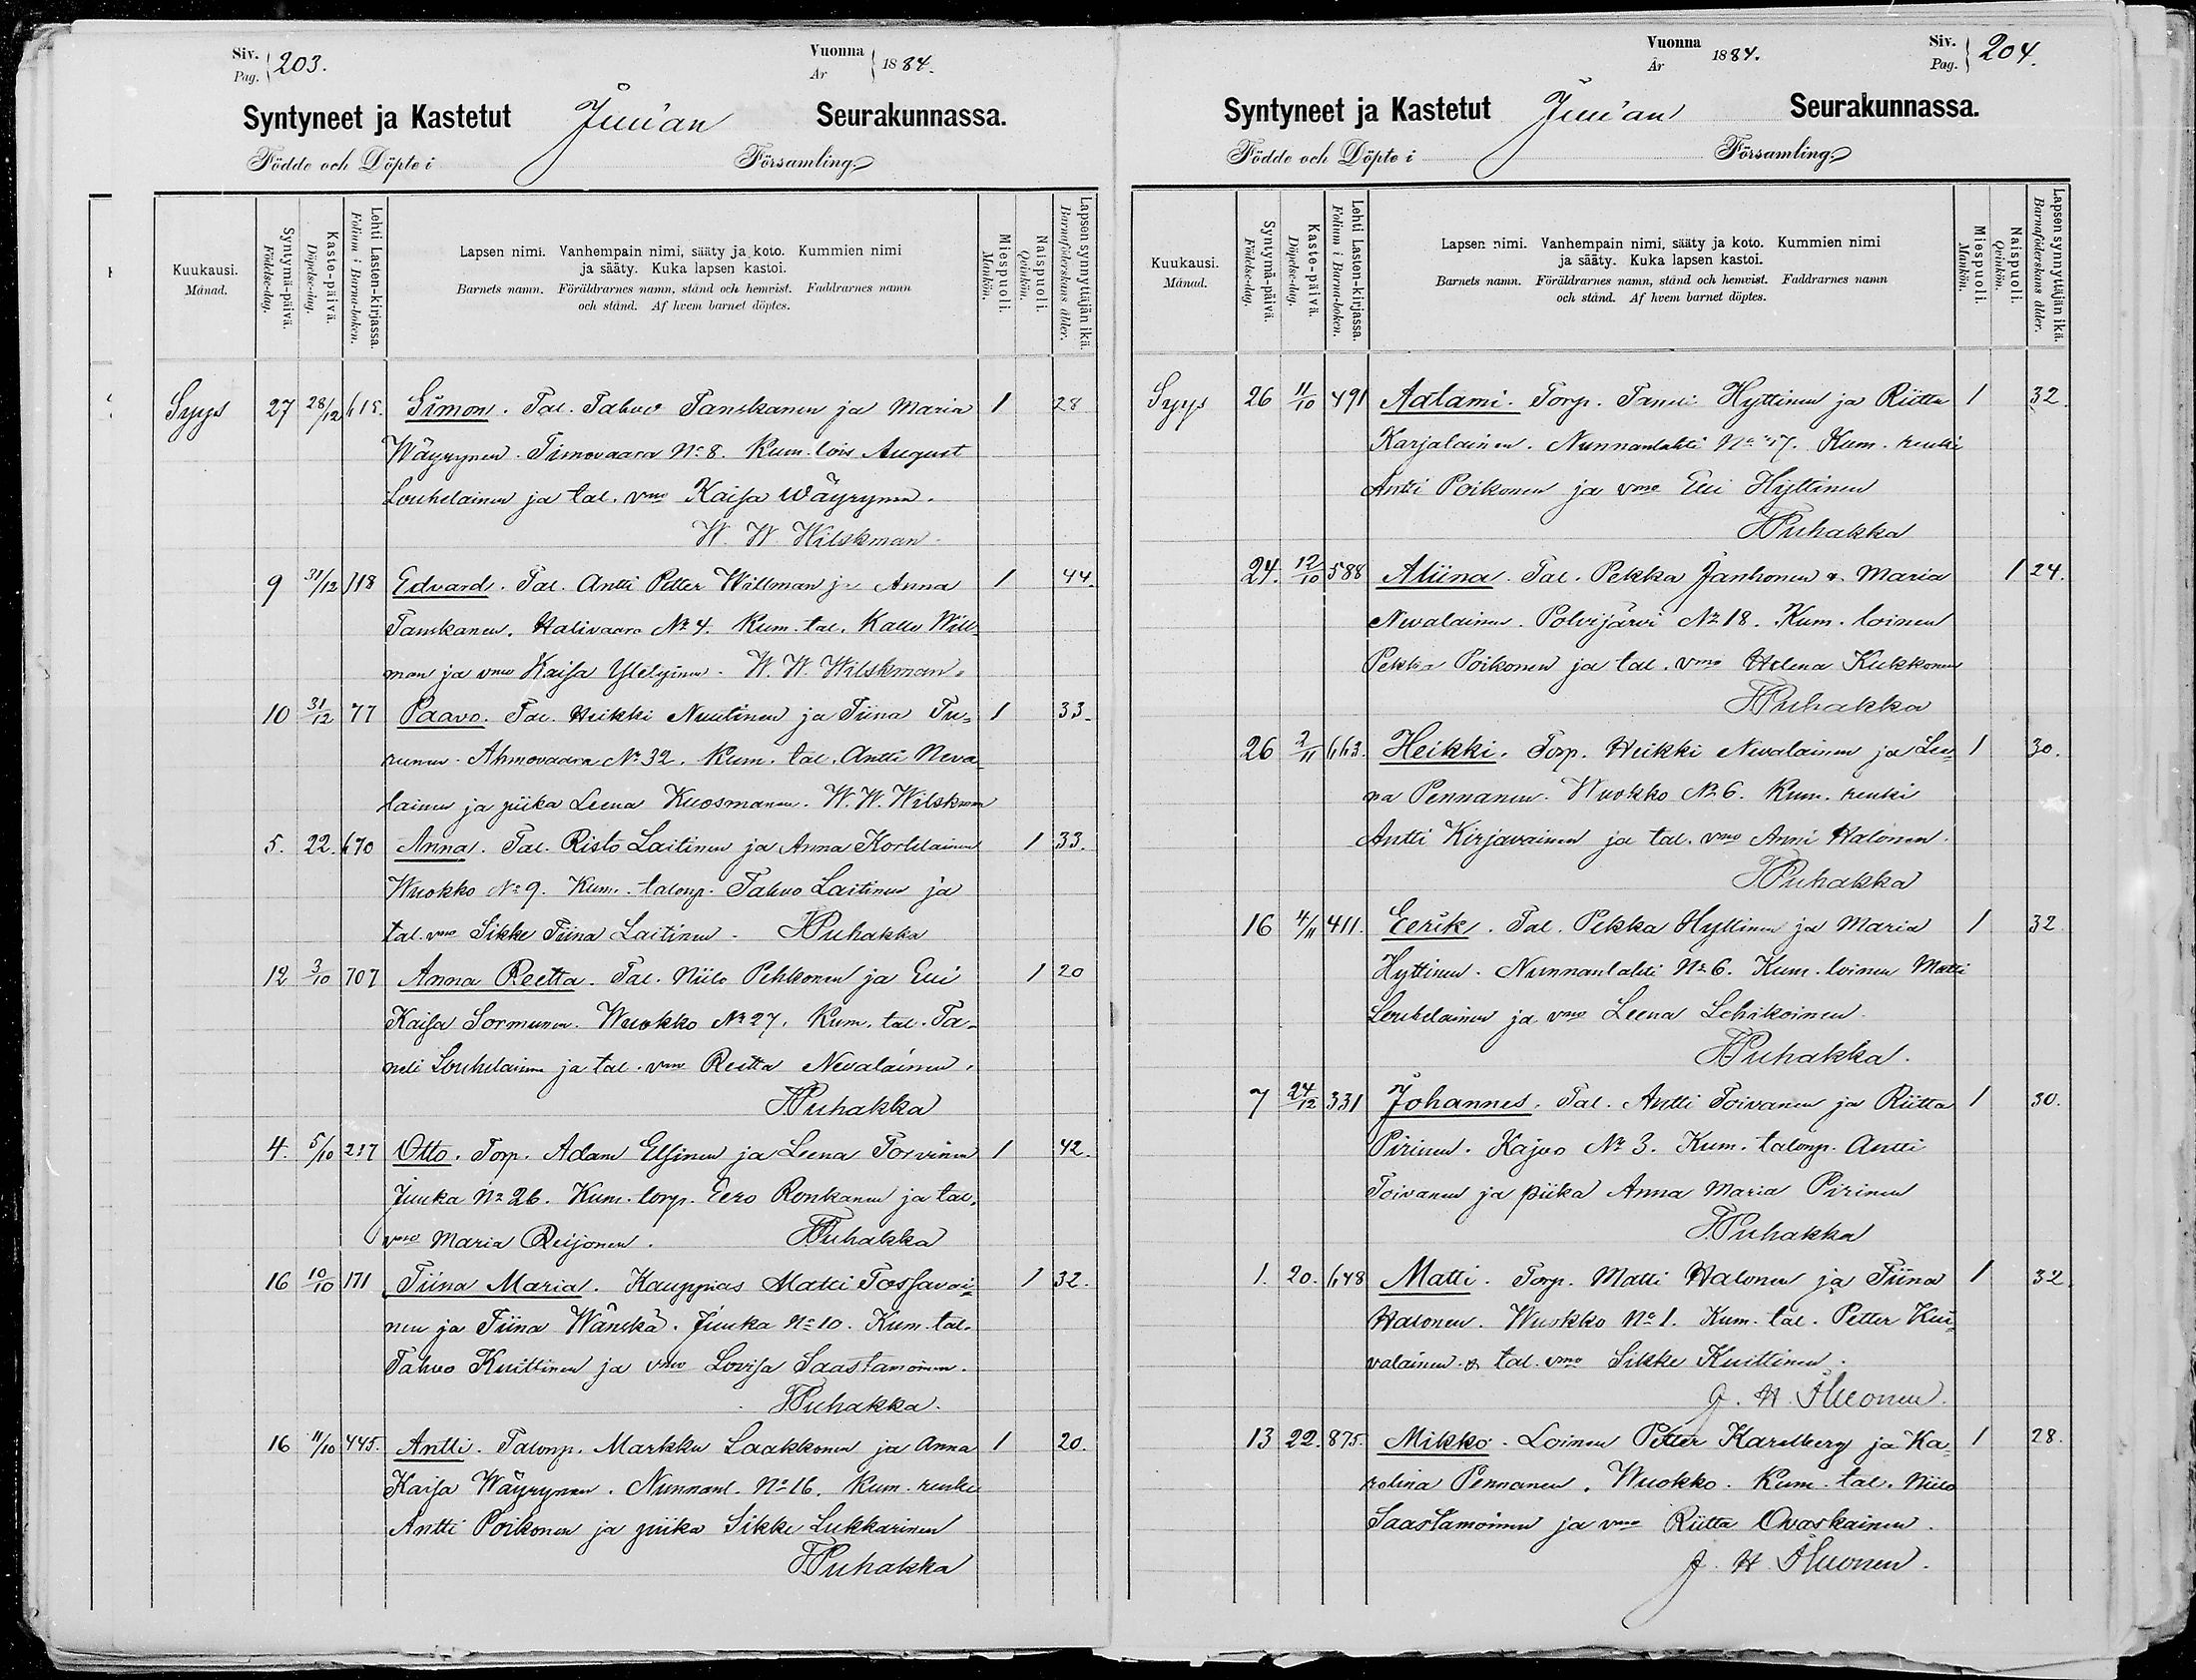 Siv. Pag. 203.
Vuonna År 1884.
Syntyneet ja Kastetut Juu'an Seurakunnassa.
Födde och Döpte i Församling.
Kuukausi. Månad.
Syntymä-päivä. Födelse-dag.
Kaste-päivä. Döpelse-dag.
Lehti Lasten-kirjassa. Folium i Barna-boken.
Lapsen nimi. Vanhempain nimi, sääty ja koto. Kummien nimi
ja sääty. Kuka lapsen kastoi.
Barnets namn. Föräldrarnes namn, stånd och hemvist. Faddrarnes namn
och stånd. Af hvem barnet döptes.
Miespuoli. Mankön.
Naispuoli. Qvinkön.
Lapsen synnyttäjän ikä. Barnaföderskans ålder.
Syys 27 28/12 615. Simon. Tal. Tahvo Tanskanen ja Maria 1 28
Wäyrynen. Timovaara No 8. Kum. lois August
Louhelainen ja tal. vmo Kaisa Wäyrynen.
W. W. Wilskman.
9 31/12 718 Edvard. Tal. Antti Petter Willman ja Anna 1 44.
Tanskanen. Halivaara No 4. Kum. tal. Kalle Will-
man ja vmo Kaisa W. W. Wilskman.
10 31/12 77 Paavo. Tal. Heikki Nuutinen ja Tiina Tu- 1 33.
runen. Ahmovaara No 32. Kum. tal. Antti Neva-
lainen ja piika Leena Kuosmanen. W. W. Wilskman
5. 22. 670 Anna. Tal. Risto Laitinen ja Anna Korhelainen 1 33.
Wuokko No 9. Kum. talonp. Tahvo Laitinen ja
tal. vmo Sikke Tiina Laitinen. Puhakka
12 3/10 707 Anna Reetta. Tal. Niilo Pehkonen ja Elli 1 20
Kaisa Sormunen. Wuokko No 27. Kum. tal. Ta-
neli Louhelainen ja tal. vmo Reetta Nevalainen.
Puhakka
4. 5/10 237 Otto. Torp. Adam Elsinen ja Leena Torvinen 1 42.
Juuka No 26. Kum. torp. Eero Ronkanen ja tal.
vmo Maria Reijonen. Puhakka
16 10/10 171 Tiina Maria. Kauppias Matti Tossavai- 1 32.
nen ja Tiina Wänskä. Juuka No 10. Kum. tal.
Tahvo Kuittinen ja vmo Lovisa Saastamoinen.
Puhakka.
16 11/10 445. Antti. Talonp. Markku Laakkonen ja Anna 1 20.
Kaisa Wäyrynen. Nunnanl. No 16. Kum. renki
Antti Poikonen ja piika Sikke Lukkarinen
Puhakka
Vuonna År 1884.
Siv. Pag. 204.
Syntyneet ja Kastetut Juu'an Seurakunnassa.
Födde och Döpte i Församling.
Kuukausi. Månad.
Syntymä-päivä. Födelse-dag.
Kaste-päivä. Döpelse-dag.
Lehti Lasten-kirjassa. Folium i Barna-boken.
Lapsen nimi. Vanhempain nimi, sääty ja koto. Kummien nimi
ja sääty. Kuka lapsen kastoi.
Barnets namn. Föräldrarnes namn, stånd och hemvist. Faddrarnes namn
och stånd. Af hvem barnet döptes.
Miespuoli. Mankön.
Naispuoli. Qvinkön.
Lapsen synnyttäjän ikä. Barnaföderskans ålder.
Syys 26 11/10 491 Aatami. Torp. Taneli Hyttinen ja Riitta 1 32.
Karjalainen. Nunnanlahti No 17. Kum. renki
Antti Poikonen ja vmo Elli Hyttinen
Puhakka
24. 12/10 588 Aliina. Tal. Pekka Janhonen & Maria 1 24.
Nevalainen. Polvijärvi No 18. Kum. loinen
Pekka Poikonen ja tal. vmo Helena Kukkonen
Puhakka
26 2/11 663. Heikki. Torp. Heikki Nevalainen ja Lee- 1 30.
na Pennanen. Wuokko No 6. Kum. renki
Antti Kirjavainen ja tal. vmo Anni Halonen.
Puhakka
16 4/11 411. Eerik. Tal. Pekka Hyttinen ja Maria 1 32
Hyttinen. Nunnanlahti No 6. Kum. loinen Matti
Louhelainen ja vmo Leena Lehikoinen.
Puhakka.
7 24/12 331 Johannes. Tal. Antti Toivanen ja Riitta 1 30.
Pirinen. Kajoo No 3. Kum. talonp. Antti
Toivanen ja piika Anna Maria Pirinen
Puhakka
1. 20. 648 Matti. Torp. Matti Halonen ja Tiina 1 32
Halonen. Wuokko No 1. Kum. tal. Petter
valainen & tal. vmo Sikke Kuittinen.
J. H. Ihonen.
13 22. 875. Mikko. Loinen Petter Karelberg ja Ka- 1 28.
rolina Pennanen. Wuokko. Kum. tal. Niilo
Saastamoinen ja vmo Riitta Ovaskainen.